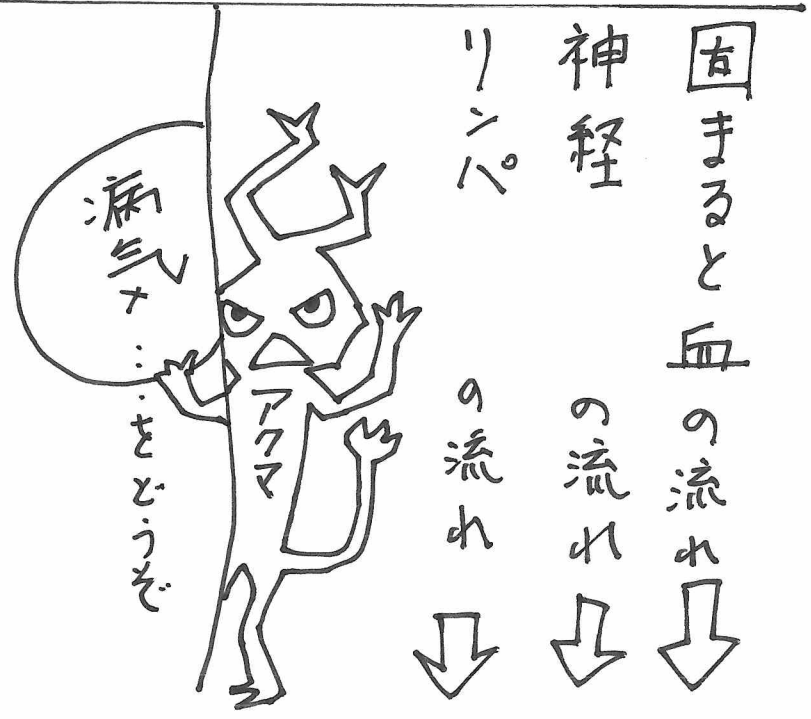 固まると血の流れ
神経の流れ
リンパの流れ
アクマ
病気々……をどうぞ